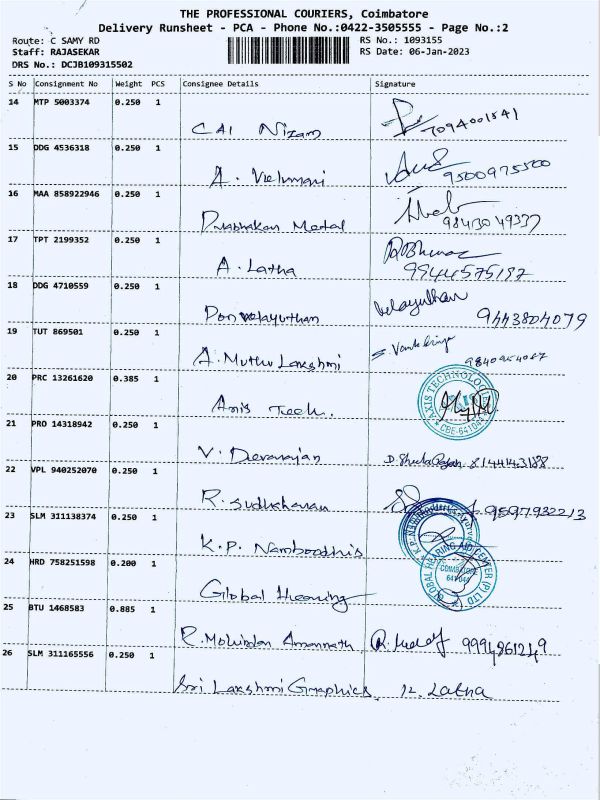 THE PROFESSIONAL COURIERS, Coimbatore
Delivery Runsheet - PCA - Phone No.:0422-3505555 - Page No.:2
Route: C SAMY RD RS No.: 1093155
Staff: RAJASEKAR RS Date: 06-Jan-2023
DRS No.: DCJB109315502
S No Consignment No Weight PCS Consignee Details Signature
14 MTP 5003374 0.250 1
CAI Nizam 7094001841
15 DDG 4536318 0.250 1
A. Velumani 9500975500
16 MAA 858922946 0.250 1
Prabhakan Metal 9843049337
17 TPT 2199352 0.250 1
A. Latha 9944575187
18 DDG 4710559 0.250 1
Ponvelayuthan Velayuthan 9443804079
19 TUT 869501 0.250 1
A. Muthu Lakshmi
20 PRC 13261620 0.385 1
Axis Tech. AXIS TECHNOLOGY CBE-641044
21 PRO 14318942 0.250 1
V. Devarajan 8144143188
22 VPL 940252070 0.250 1
R. Sudhaharan 9597932213
23 SLM 311138374 0.250 1
K.P. Namboodhis
24 HRD 758251598 0.200 1
Global Hearing GLOBAL HEARING AID CENTER (P) LTD COIMBATORE 641044
25 BTU 1468583 0.885 1
R. Mohindar Amannath 9994861249
26 SLM 311165556 0.250 1
Sri Lakshmi Graphics R. Latha